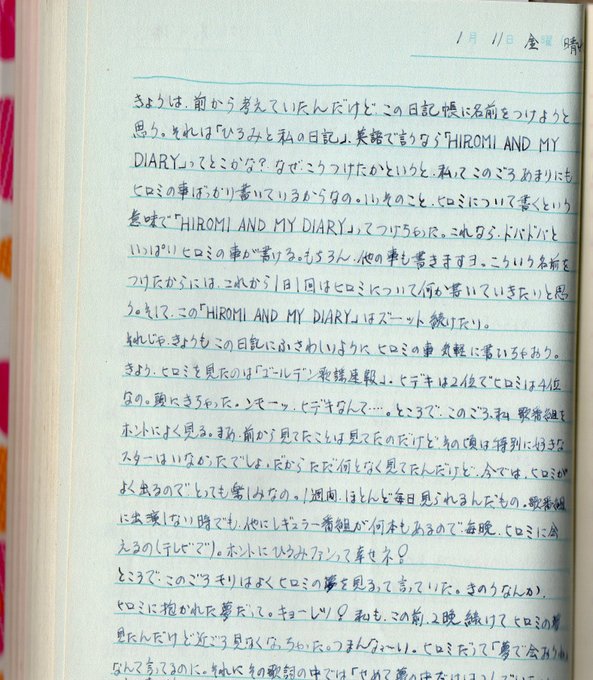 1月 11日 金曜 晴
きょうは、前から考えていたんだけど、この日記帳に名前をつけようと
思う。それは「ひろみと私の日記」、英語で言うなら「HIROMI AND MY
DIARY」ってとこかな？なぜ、こうつけたかというと、私ってこのごろあまりにも
ヒロミの事ばっかり書いているからなの。いっそのこと、ヒロミについて書くという
意味で「HIROMI AND MY DIARY」ってつけちゃった。これなら、ドバドバと
いっぱいヒロミの事が書ける。もちろん、他の事も書きますヨ。こういう名前を
つけたからには、これから1日1回はヒロミについて何か書いていきたいと思
う。そして、この「HIROMI AND MY DIARY」はズーット続けたい。
それじゃ、きょうもこの日記にふさわしいようにヒロミの事、気軽に書いちゃおう。
きょう、ヒロミを見たのは「ゴールデン歌謡速報」。ヒデキは2位でヒロミは4位
なの。頭にきちゃった。ンモーッ、ヒデキなんて…。ところで、このごろ、私、歌番組を
ホントによく見る。まあ、前から見てたことは見てたのだけど、その頃は特別に好きな
スターはいなかったでしょ、だからただ何となく見てたんだけど、今では、ヒロミが
よく出るので、とっても楽しみなの。1週間、ほとんど毎日見られるんだもの。歌番組
に出演しない時でも、他にレギュラー番組が何本もあるので、毎晩、ヒロミに会
えるの(テレビで)。ホントにひろみファンって幸せネ!
ところで、このごろモリはよくヒロミの夢を見るって言っていた。きのうなんか、
ヒロミに抱かれた夢だって。キョーレツ!私も、この前、2晩続けてヒロミの夢
見たんだけど近ごろ見なくなっちゃった。つまんなーい。ヒロミだって「夢で会おうね」
なんて言ってるのに。それにその歌詞の中では「せめて夢の中だけは